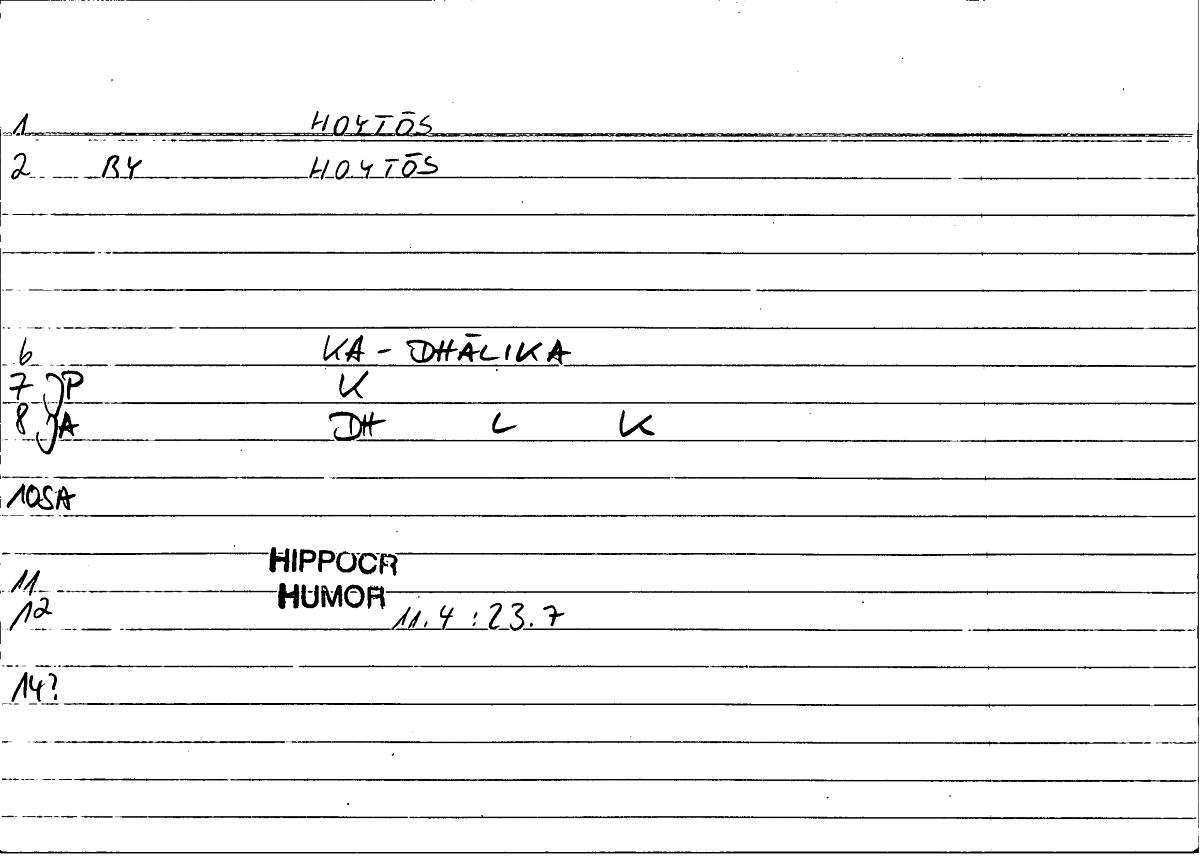 1 HOYTŌS
2 BY HOYTŌS
6 KA - DHĀLIKA
7 JP K
8 JA DH L K
10SA
HIPPOCR
11
HUMOR
12 11.4 : 23.7
14?